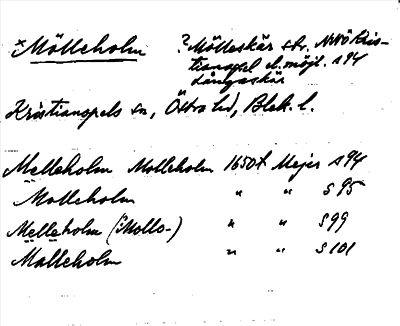 ×Mölleholm ?Mölleskär str. NNÖ Kris-
tianopel el. möjl. s 94
Långaskär
Kristianopels sn, Östra hd, Blek. l.
Melleholm Molleholm 1650t Mejer s 94
Molleholm " " s 95
Melleholm (Mollo-) " " s 99
Malleholm " " s 101